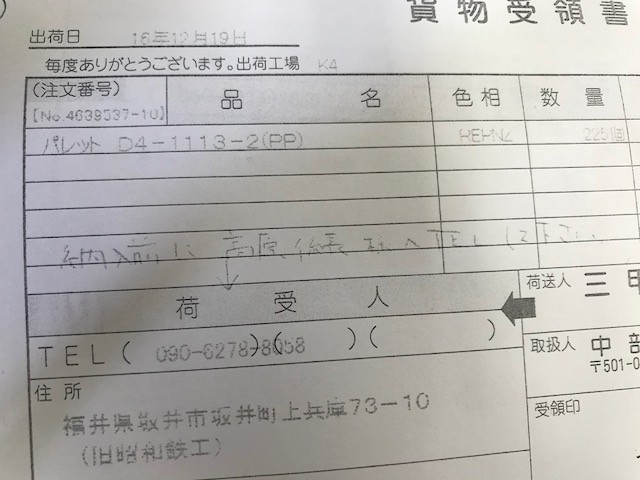 貨物受領書
出荷日 16年12月19日
毎度ありがとうございます。出荷工場 K4
(注文番号) 品名 色相 数量
【No.4639537-10】
パレット D4-1113-2(PP) 225個
納入前に 高原係長 TEL して下さい
荷受人
荷送人 三甲
TEL( 090-6278-8058 )( )( )
取扱人 中部
〒501-0
住所
受領印
福井県坂井市坂井町上兵庫73-10
(旧昭和鉄工)